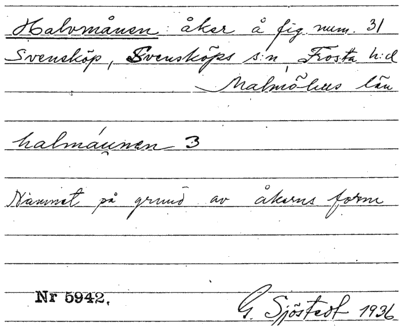 Halvmånen: åker å fig. num. 31
Svensköp, Svensköps s:n, Frosta h:d
Malmöhus län
halmåunen 3
Namnet på grund av åkerns form
Nr 5942.
G. Sjöstedt 1936